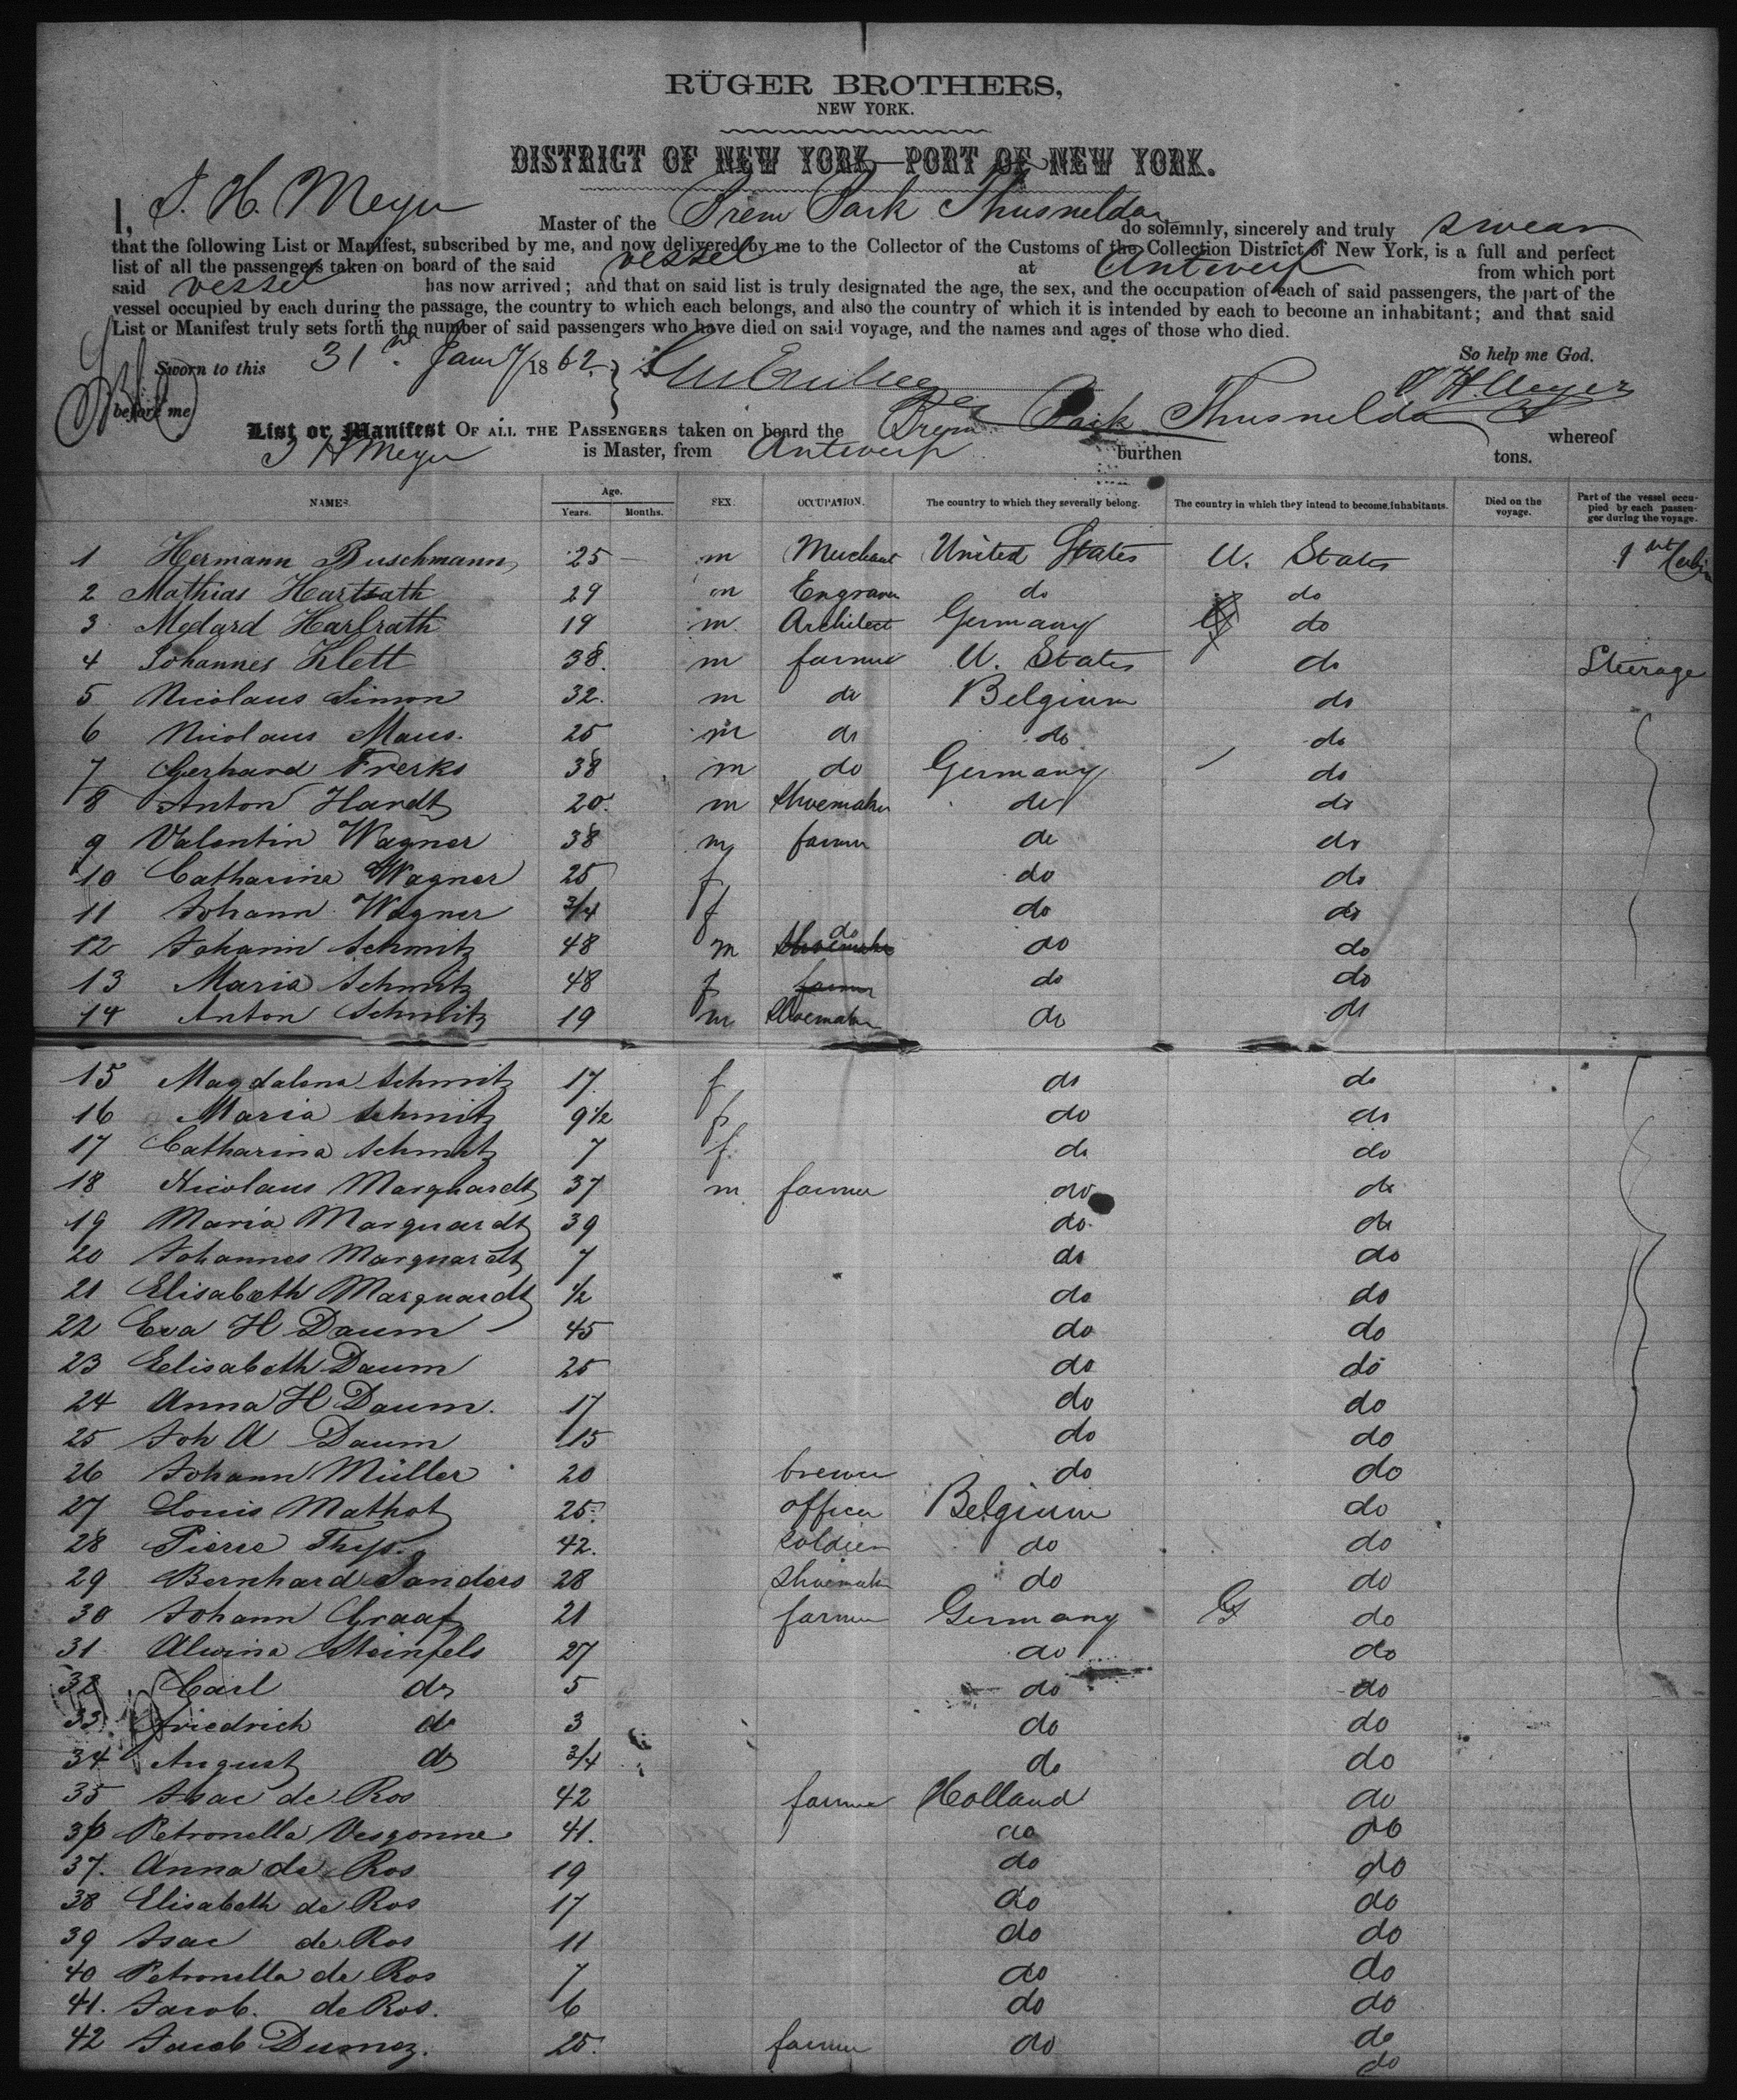 RÜGER BROTHERS,
NEW YORK.
DISTRICT OF NEW YORK—PORT OF NEW YORK.
I, J. H. Meyer Master of the Brem Bark Thusnelda do solemnly, sincerely and truly swear
that the following List or Manifest, subscribed by me, and now delivered by me to the Collector of the Customs of the Collection District of New York, is a full and perfect
list of all the passengers taken on board of the said vessel at Antwerp from which port
said vessel has now arrived; and that on said list is truly designated the age, the sex, and the occupation of each of said passengers, the part of the
vessel occupied by each during the passage, the country to which each belongs, and also the country of which it is intended by each to become an inhabitant; and that said
List or Manifest truly sets forth the number of said passengers who have died on said voyage, and the names and ages of those who died.
So help me God.
Sworn to this 31 Jany 1862. J H Meyer
before me
List or Manifest OF ALL THE PASSENGERS taken on board the Brem Bark Thusnelda whereof
J H Meyer is Master, from Antwerp burthen tons.
NAMES. Age. Years. Months. SEX. OCCUPATION. The country to which they severally belong. The country in which they intend to become inhabitants. Died on the voyage. Part of the vessel occupied by each passenger during the voyage.
1 Hermann Buschmann 25 m Merchant United States U. States 1st Cabin
2 Mathias Hartrath 29 m Engraver do do
3 Medard Harbrath 19 m Architect Germany do
4 Johannes Klett 38 m farmer U. States do Steerage
5 Nicolaus Simon 32 m do Belgium do
6 Nicolaus Maus. 25 m do do do
7 Gerhard Frerks 38 m do Germany do
8 Anton Hardt 20 m Shoemaker do do
9 Valentin Wagner 38 m farmer do do
10 Catharina Wagner 25 f do do
11 Johann Wagner 3/4 f do do
12 Johann Schmitz 48 m Shoemaker do do do
13 Maria Schmitz 48 f farmer do do
14 Anton Schmitz 19 m Shoemaker do do
15 Magdalena Schmitz 17 f do do
16 Maria Schmitz 9 1/2 f do do
17 Catharina Schmitz 7 f do do
18 Nicolaus Marquardt 37 m farmer do do
19 Maria Marquardt 39 do do
20 Johannes Marquardt 7 do do
21 Elisabeth Marquardt 1/2 do do
22 Eva H Daum 45 do do
23 Eelisabeth Daum 25 do do
24 Anna H Daum. 17 do do
25 Joh A Daum 15 do do
26 Johann Müller 20 brewer do do
27 Louis Mathot 25 officer Belgium do
28 Pierre Thys. 42. Soldier do do
29 Bernhard Sanders 28 Shoemaker do do
30 Johann Graaf 21 farmer Germany do
31 Alwina Steinfels 27 do do
32 Carl do 5 do do
33 Friedrich do 3 do do
34 August do 3/4 do do
35 Isac de Ros 42 farmer Holland do
36 Petronella Vergonne 41. do do
37. Anna de Ros 19 do do
38 Elisabeth de Ros 17 do do
39 Isac de Ros 11 do do
40 Petronella de Ros 7 do do
41. Jacob. de Ros. 6 do do
42 Jacob Dumez. 25. farmer do do
do